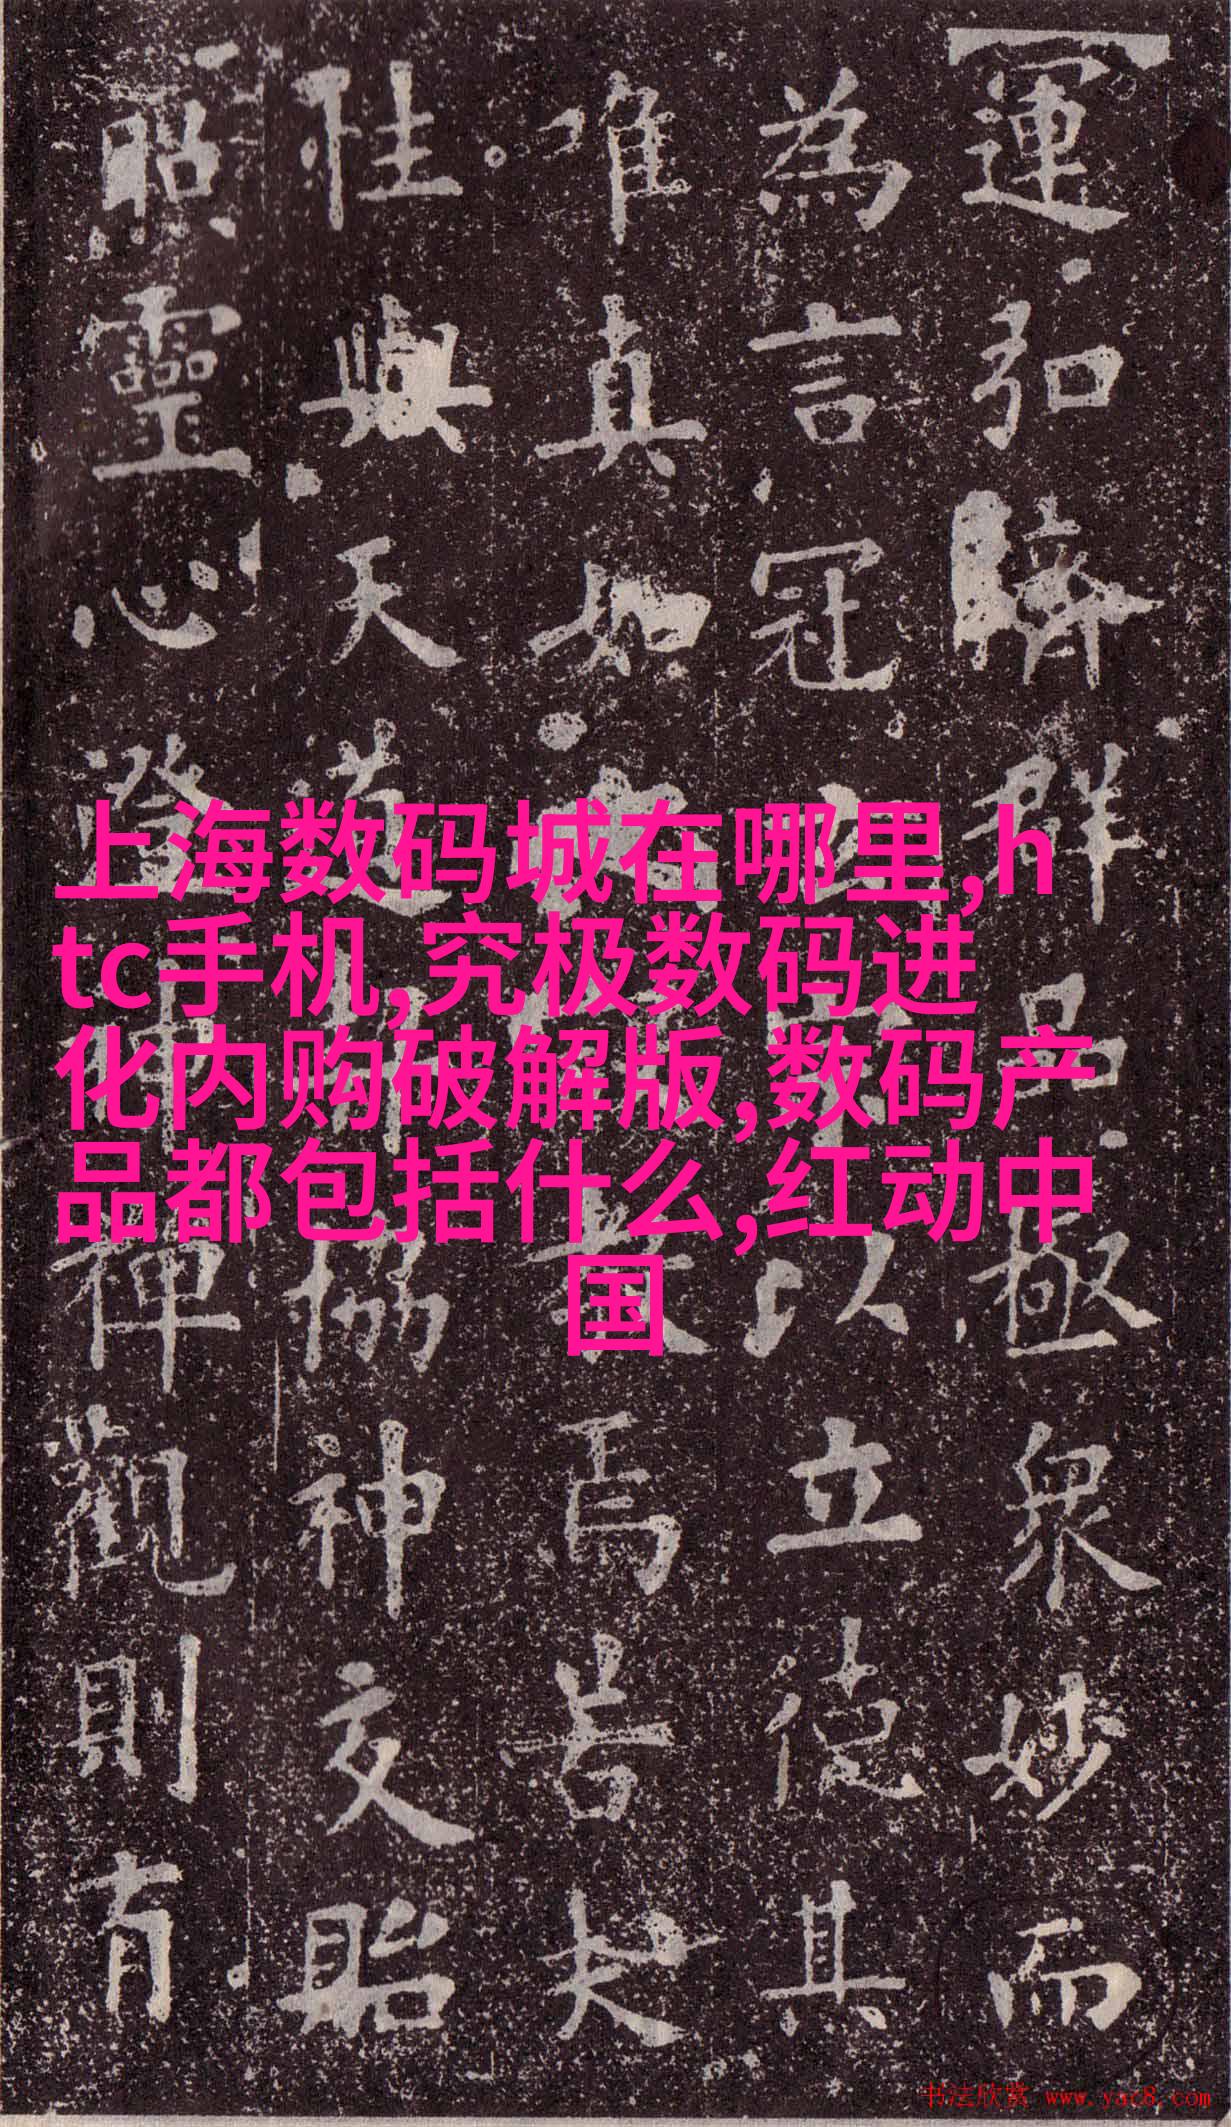 運弘濟群品極眾妙而
為言冠以立德其
唯真如焉若夫
性與天道協神交貽
照靈心澄神禪觀則有
上海数码城在哪里,h
tc手机,究极数码进
化内购破解版,数码产
品都包括什么,红动中
国
书法欣赏 www.yac8.com